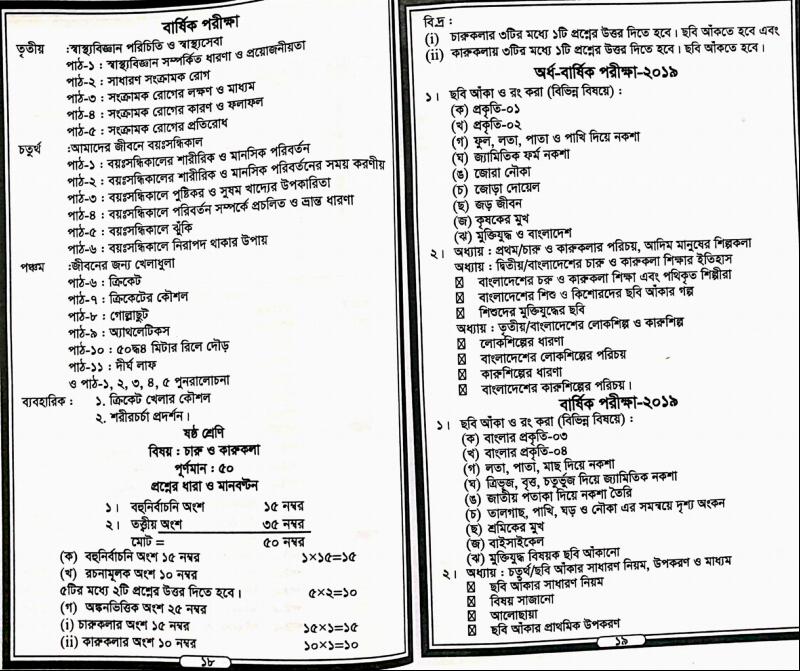 বার্ষিক পরীক্ষা
তৃতীয় :স্বাস্থ্যবিজ্ঞান পরিচিতি ও স্বাস্থ্যসেবা
পাঠ-১ : স্বাস্থ্যবিজ্ঞান সম্পর্কিত ধারণা ও প্রয়োজনীয়তা
পাঠ-২ : সাধারণ সংক্রামক রোগ
পাঠ-৩ : সংক্রামক রোগের লক্ষণ ও মাধ্যম
পাঠ-৪ : সংক্রামক রোগের কারণ ও ফলাফল
পাঠ-৫ : সংক্রামক রোগের প্রতিরোধ
চতুর্থ :আমাদের জীবনে বয়ঃসন্ধিকাল
পাঠ-১ : বয়ঃসন্ধিকালের শারীরিক ও মানসিক পরিবর্তন
পাঠ-২ : বয়ঃসন্ধিকালের শারীরিক ও মানসিক পরিবর্তনের সময় করণীয়
পাঠ-৩ : বয়ঃসন্ধিকালে পুষ্টিকর ও সুষম খাদ্যের উপকারিতা
পাঠ-৪ : বয়ঃসন্ধিকালে পরিবর্তন সম্পর্কে প্রচলিত ও ভ্রান্ত ধারণা
পাঠ-৫ : বয়ঃসন্ধিকালে ঝুঁকি
পাঠ-৬ : বয়ঃসন্ধিকালে নিরাপদ থাকার উপায়
পঞ্চম :জীবনের জন্য খেলাধুলা
পাঠ-৬ : ক্রিকেট
পাঠ-৭ : ক্রিকেটের কৌশল
পাঠ-৮ : গোল্লাছুট
পাঠ-৯ : অ্যাথলেটিকস
পাঠ-১০ : ৫০দ্ধ৪ মিটার রিলে দৌড়
পাঠ-১১ : দীর্ঘ লাফ
ও পাঠ-১, ২, ৩, ৪, ৫ পুনরালোচনা
ব্যবহারিক : ১. ক্রিকেট খেলার কৌশল
২. শরীরচর্চা প্রদর্শন।
ষষ্ঠ শ্রেণি
বিষয় : চারু ও কারুকলা
পূর্ণমান : ৫০
প্রশ্নের ধারা ও মানবণ্টন
১। বহুনির্বাচনি অংশ ১৫ নম্বর
২। তত্ত্বীয় অংশ ৩৫ নম্বর
মোট = ৫০ নম্বর
(ক) বহুনির্বাচনি অংশ ১৫ নম্বর ১×১৫=১৫
(খ) রচনামূলক অংশ ১০ নম্বর
৫টির মধ্যে ২টি প্রশ্নের উত্তর দিতে হবে। ৫×২=১০
(গ) অঙ্কনভিত্তিক অংশ ২৫ নম্বর
(i) চারুকলার অংশ ১৫ নম্বর ১৫×১=১৫
(ii) কারুকলার অংশ ১০ নম্বর ১০×১=১০
১৮
বি.দ্র :
(i) চারুকলার ৩টির মধ্যে ১টি প্রশ্নের উত্তর দিতে হবে। ছবি আঁকতে হবে এবং
(ii) কারুকলায় ৩টির মধ্যে ১টি প্রশ্নের উত্তর দিতে হবে। ছবি আঁকতে হবে।
অর্ধ-বার্ষিক পরীক্ষা-২০১৯
১। ছবি আঁকা ও রং করা (বিভিন্ন বিষয়ে) :
(ক) প্রকৃতি-০১
(খ) প্রকৃতি-০২
(গ) ফুল, লতা, পাতা ও পাখি দিয়ে নকশা
(ঘ) জ্যামিতিক ফর্ম নকশা
(ঙ) জোরা নৌকা
(চ) জোড়া দোয়েল
(ছ) জড় জীবন
(জ) কৃষকের মুখ
(ঝ) মুক্তিযুদ্ধ ও বাংলাদেশ
২। অধ্যায় : প্রথম/চারু ও কারুকলার পরিচয়, আদিম মানুষের শিল্পকলা
অধ্যায় : দ্বিতীয়/বাংলাদেশের চারু ও কারুকলা শিক্ষার ইতিহাস
বাংলাদেশের চরু ও কারুকলা শিক্ষা এবং পথিকৃত শিল্পীরা
বাংলাদেশের শিশু ও কিশোরদের ছবি আঁকার গল্প
শিশুদের মুক্তিযুদ্ধের ছবি
অধ্যায় : তৃতীয়/বাংলাদেশের লোকশিল্প ও কারুশিল্প
লোকশিল্পের ধারণা
বাংলাদেশের লোকশিল্পের পরিচয়
কারুশিল্পের ধারণা
বাংলাদেশের কারুশিল্পের পরিচয়।
বার্ষিক পরীক্ষা-২০১৯
১। ছবি আঁকা ও রং করা (বিভিন্ন বিষয়ে) :
(ক) বাংলার প্রকৃতি-০৩
(খ) বাংলার প্রকৃতি-০৪
(গ) লতা, পাতা, মাছ দিয়ে নকশা
(ঘ) ত্রিভূজ, বৃত্ত, চতুর্ভূজ দিয়ে জ্যামিতিক নকশা
(ঙ) জাতীয় পতাকা দিয়ে নকশা তৈরি
(চ) তালগাছ, পাখি, ঘড় ও নৌকা এর সমন্বয়ে দৃশ্য অংকন
(ছ) শ্রমিকের মুখ
(জ) বাইসাইকেল
(ঝ) মুক্তিযুদ্ধ বিষয়ক ছবি আঁকানো
২। অধ্যায় : চতুর্থ/ছবি আঁকার সাধারণ নিয়ম, উপকরণ ও মাধ্যম
ছবি আঁকার সাধারণ নিয়ম
বিষয় সাজানো
আলোছায়া
ছবি আঁকার প্রাথমিক উপকরণ
১৯